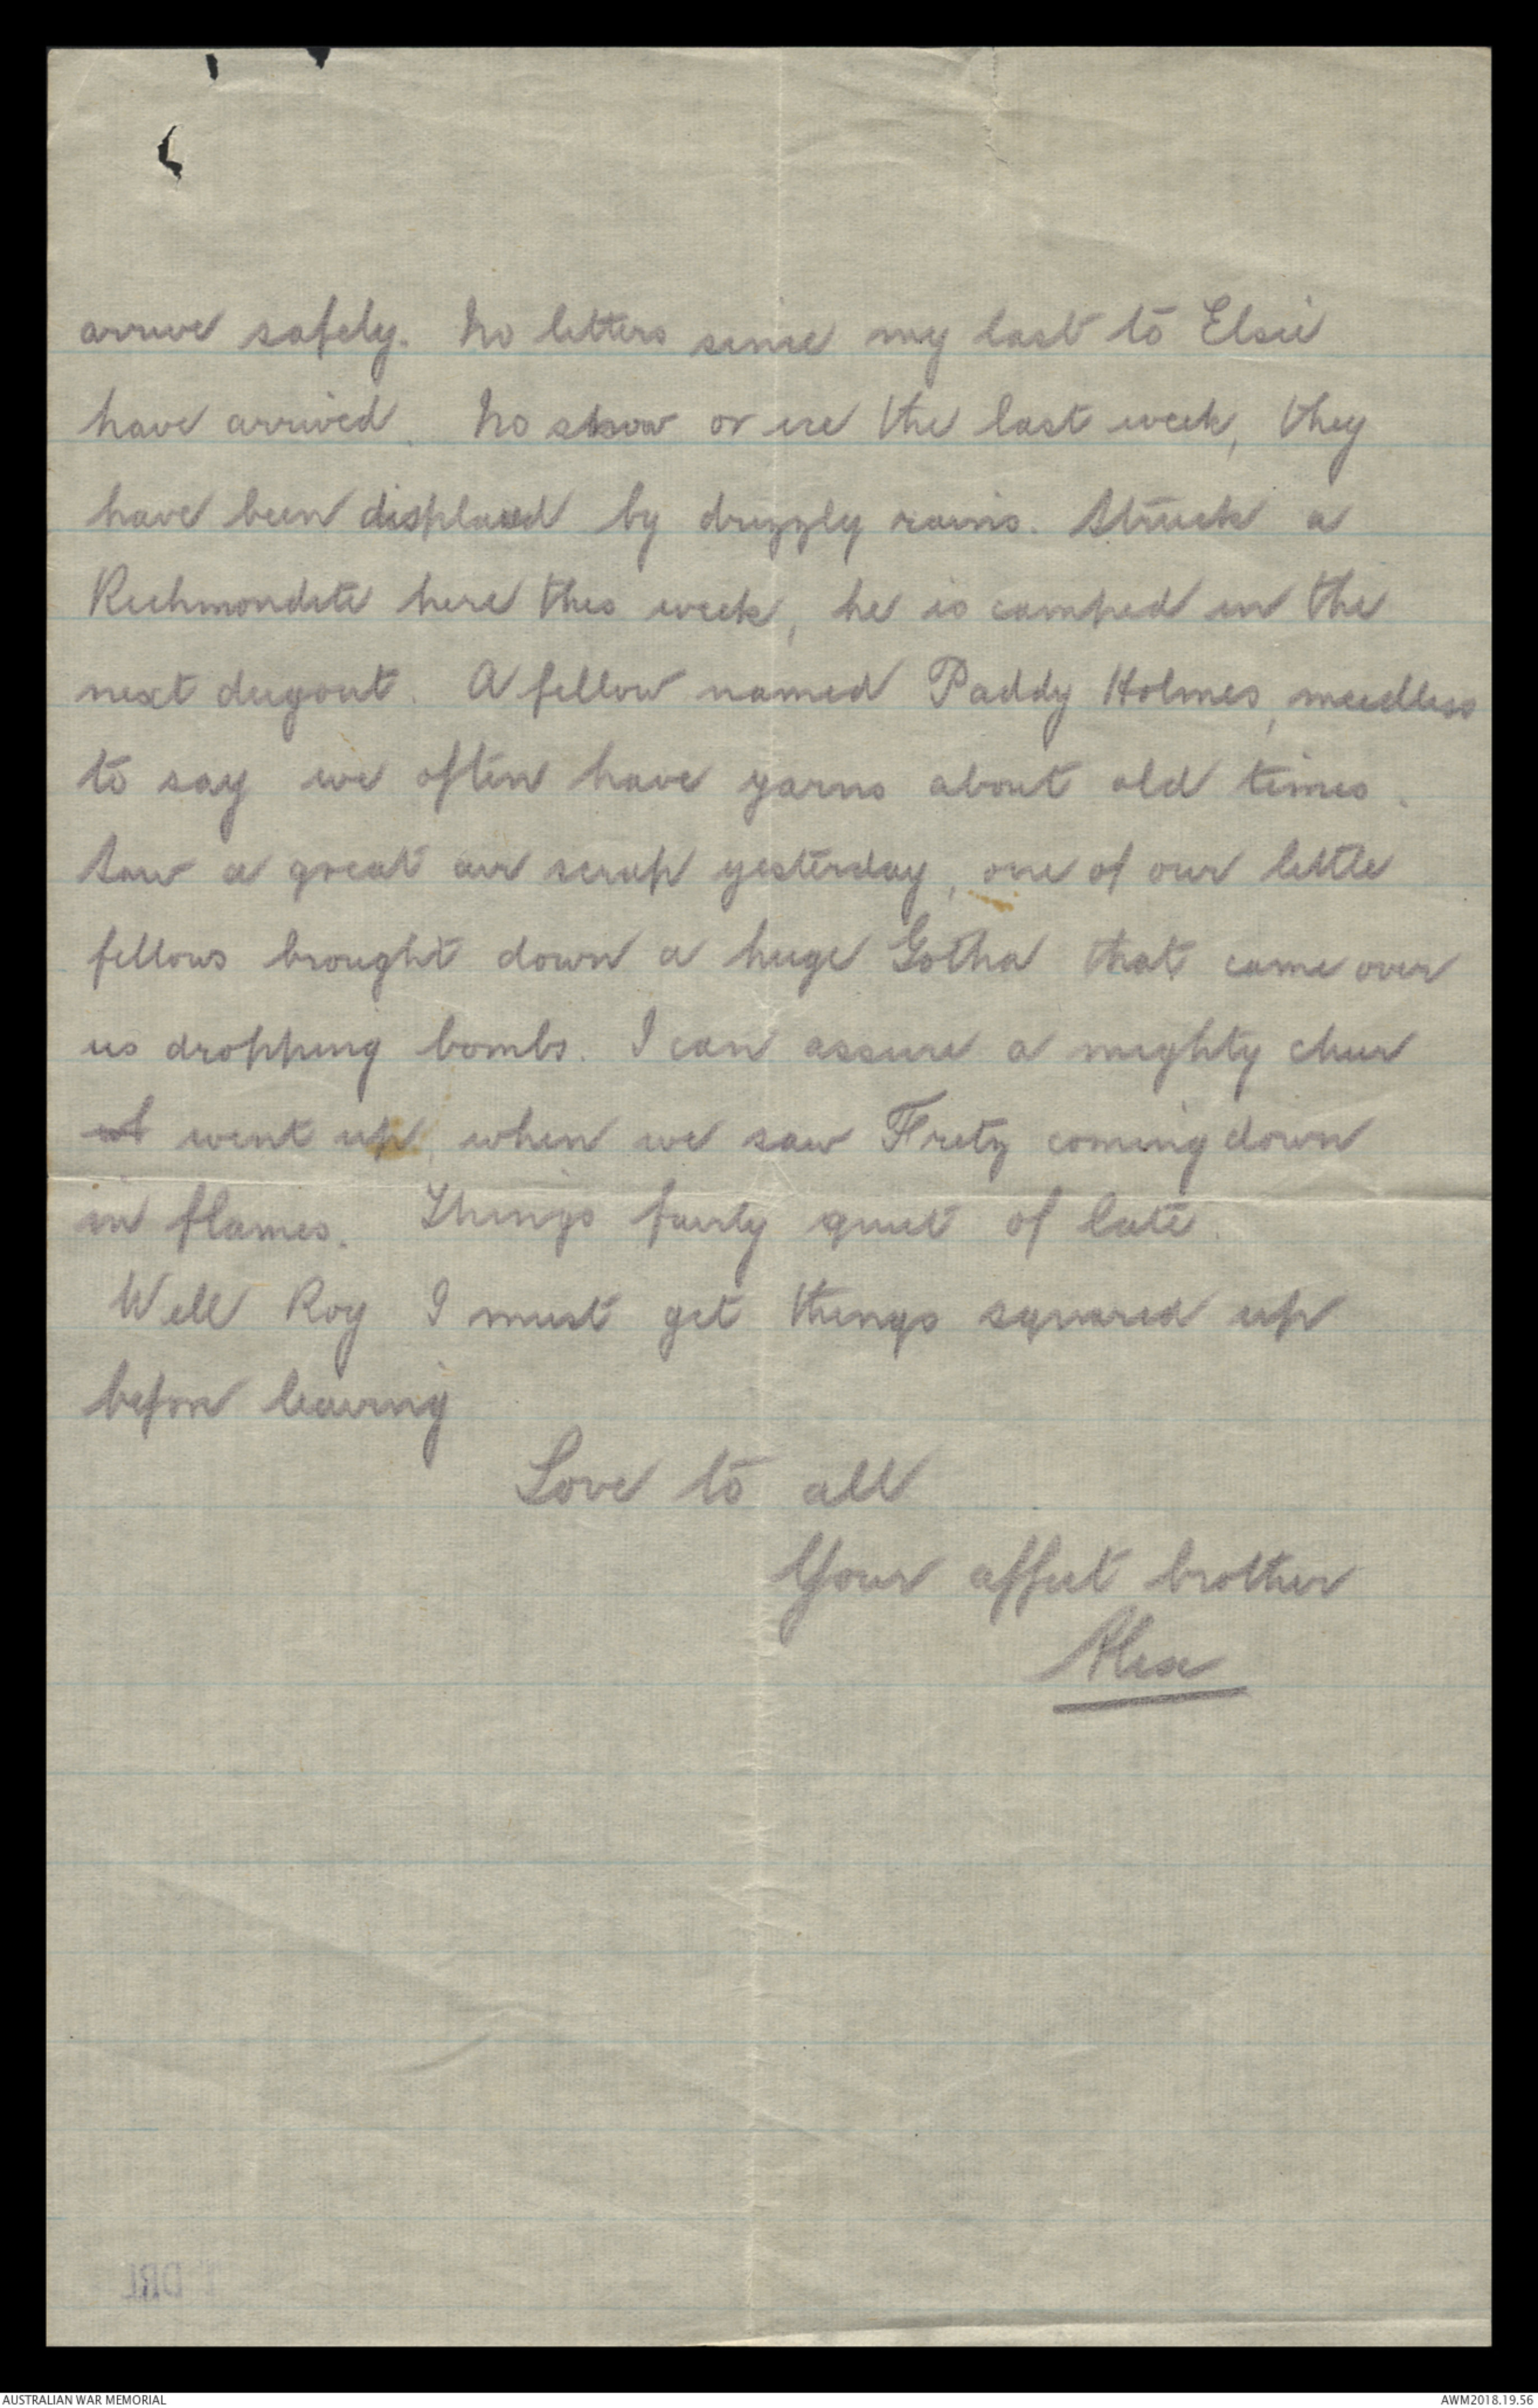 arrive safely. No letters since my last to Elsie
have arrived. No snow or ice the last week, they
have been displaced by drizzly rains. Struck a
Richmondite here this week, he is camped in the
next dugout. A fellow named Paddy Holmes, needless
to say we often have yarns about old times.
Saw a great air scrap yesterday, one of our little
fellows brought down a huge Gotha that came over
us dropping bombs. I can assure a mighty cheer
went up, when we saw Fritz coming down
in flames. Things fairly quiet of late.
Well Roy I must get things squared up
before leaving
Love to all
Your affect brother
Alex
DRL
AUSTRALIAN WAR MEMORIAL
AWM2018.19.56